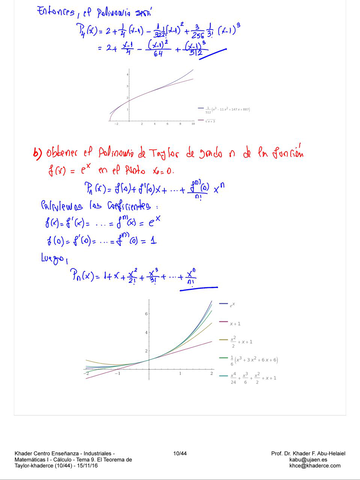 Entonces, el polinomio será
P₄(x) = 2 + 1/4 (x-1) - 1/32 1/2 (x-1)² + 3/256 1/3! (x-1)³
= 2 + (x-1)/4 - (x-1)²/64 + (x-1)³/512
b) Obtener el Polinomio de Taylor de grado n de la función
f(x) = eˣ en el punto x₀ = 0.
Pₙ(x) = f(0) + f'(0)x + ... + fⁿ⁾(0)/n! xⁿ
Calculemos los coeficientes :
f(x) = f'(x) = .... = fⁿ⁾(x) = eˣ
f(0) = f'(0) = .... = fⁿ⁾(0) = 1
Luego,
Pₙ(x) = 1 + x + x²/2! + x³/3! + ... + xⁿ/n!
eˣ
x + 1
x²/2 + x + 1
1/6 (x³ + 3x² + 6x + 6)
x⁴/24 + x³/6 + x²/2 + x + 1
-2 -1 1 2
Khader Centro Enseñanza - Industriales -
Matemáticas I - Cálculo - Tema 9. El Teorema de
Taylor-khaderce (10/44) - 15/11/16
10/44
Prof. Dr. Khader F. Abu-Helaiel
kabu@ujaen.es
khce@khaderce.com